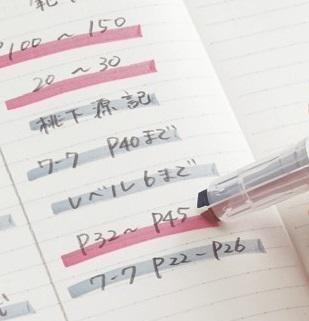 P100～150
20～30
桃下源記
ワーク P40まで
レベル6まで
P32～P45
ワーク P22-P26